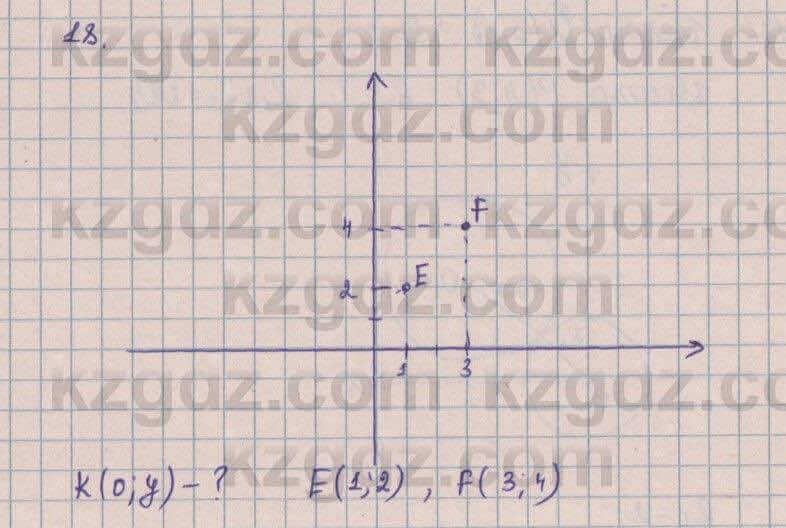 18.
kzgdz.com kzgdz.com
kzgdz.com
F
kzgdz.com kzgdz.com
4
E
2
kzgdz.com
1 3
kzgdz.com kzgdz.com
kzgdz.com
K(0;y) - ? E(1;2) , F(3;4)